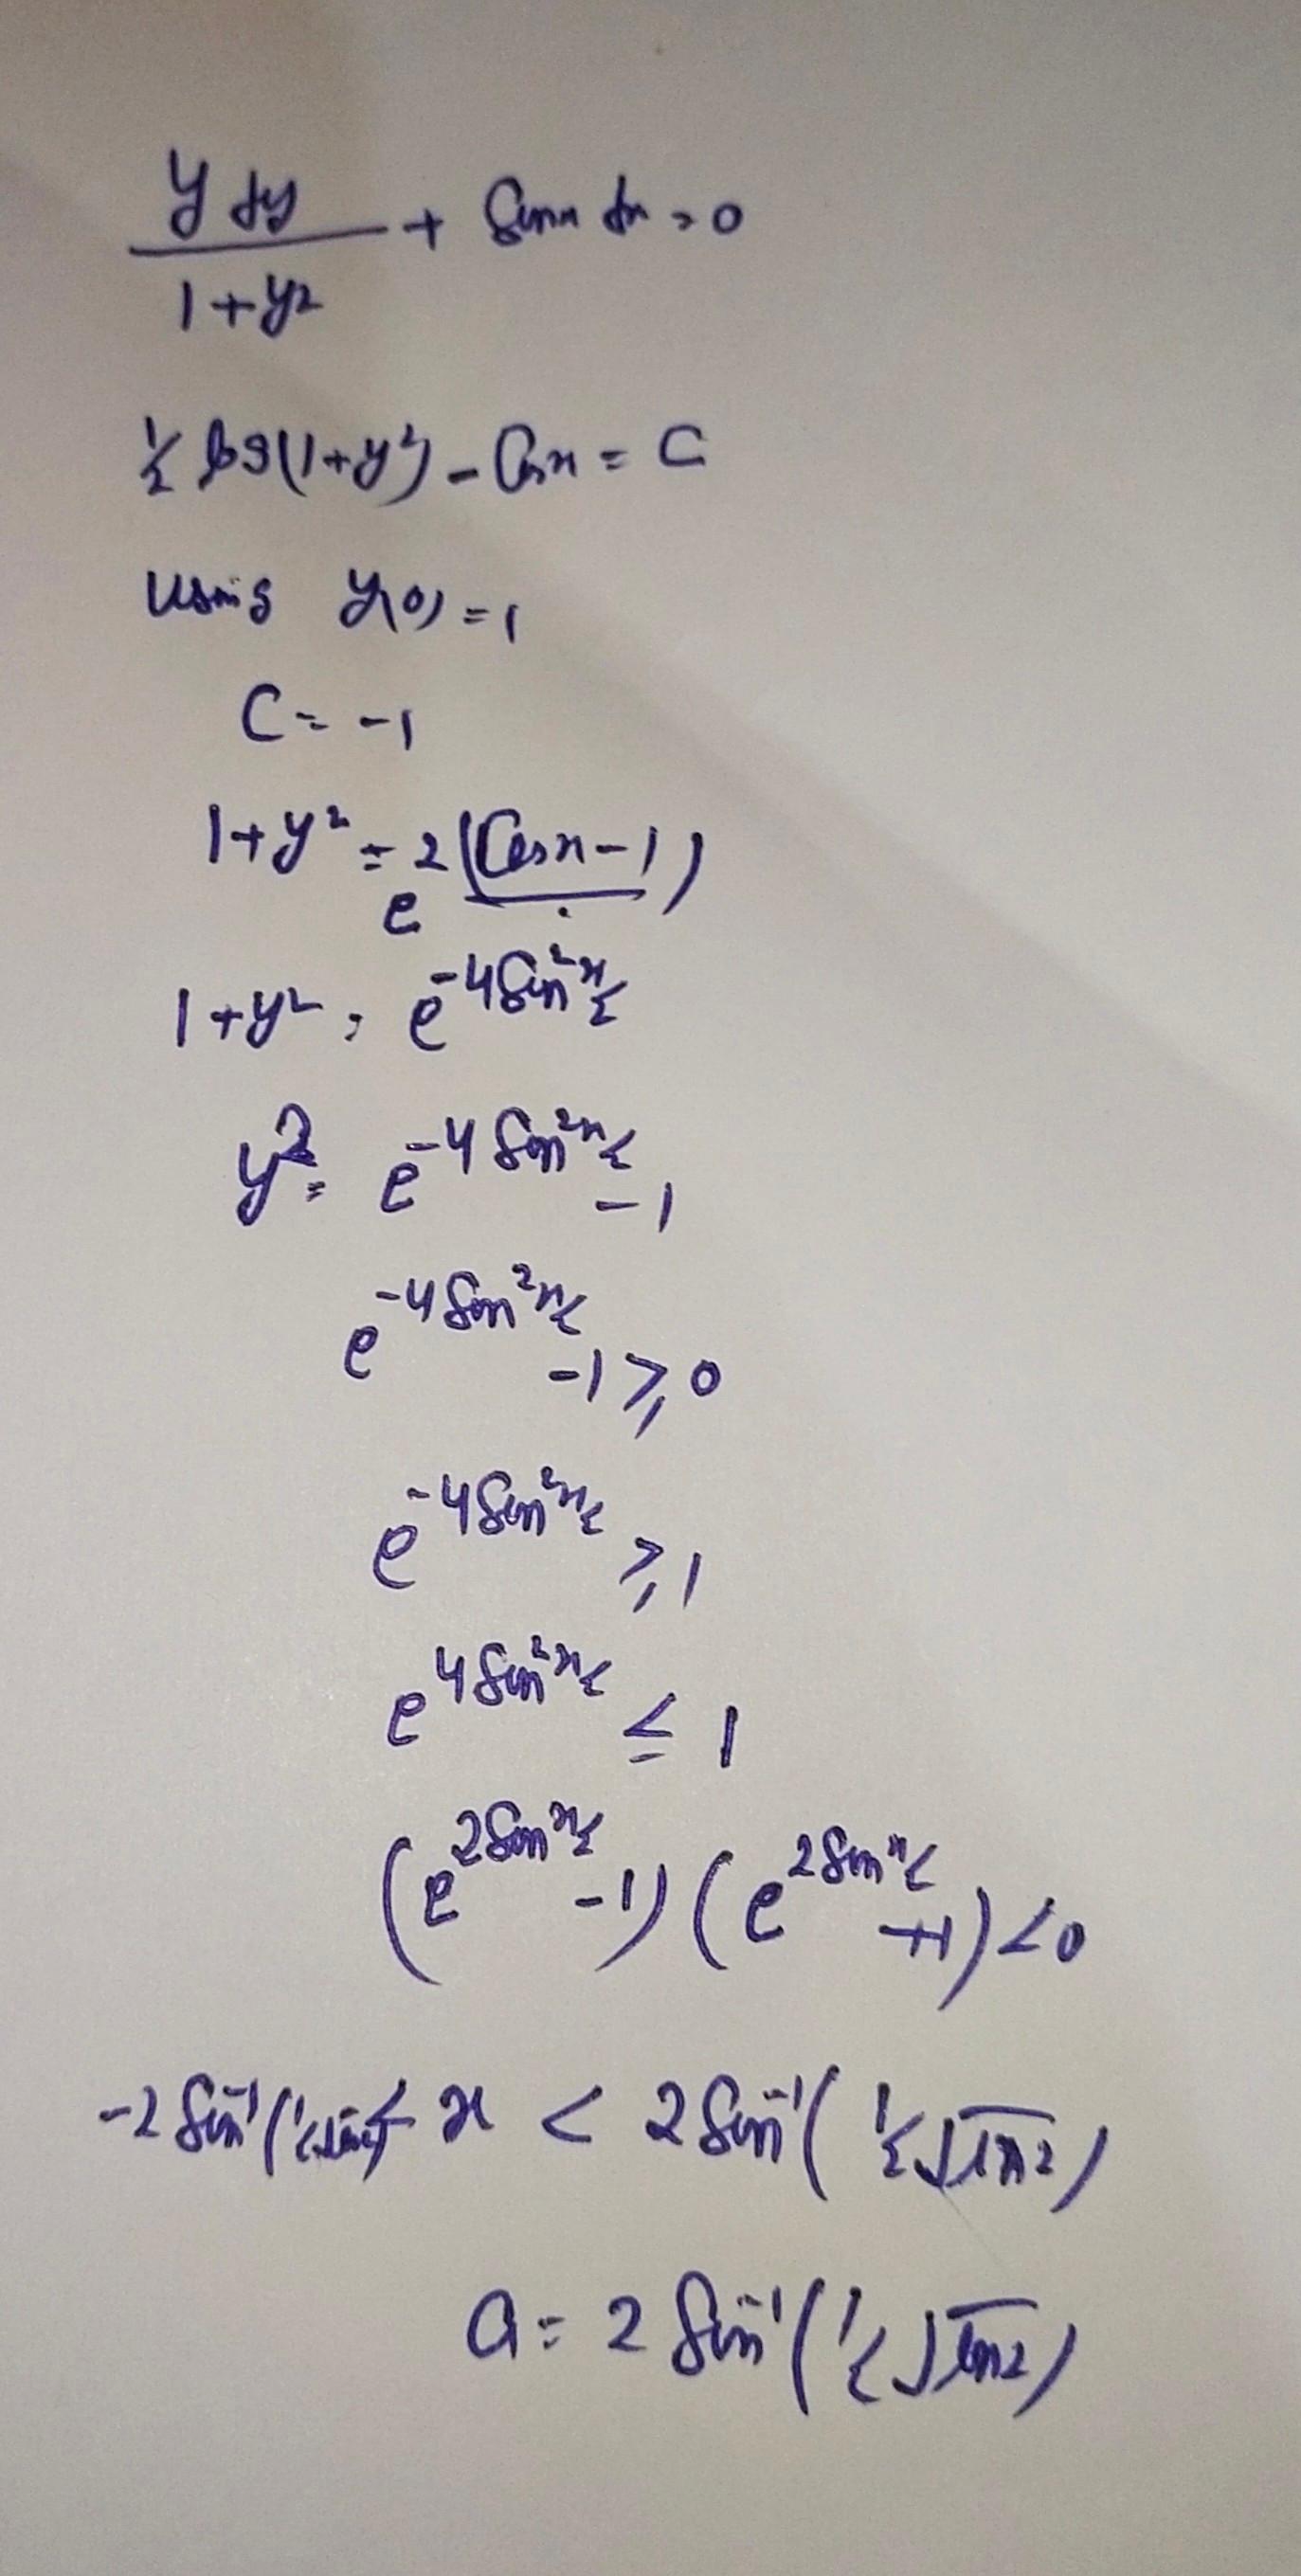 y dy / 1+y² + Sinx dx = 0
½ log(1+y²) - Cosx = C
Using y(0) = 1
C = -1
1+y² = e^2(Cosx-1)
1+y² = e^-4Sin²x/2
y² = e^-4Sin²x/2 - 1
e^-4Sin²x/2 -1 ≥ 0
e^-4Sin²x/2 ≥ 1
e^4Sin²x/2 ≤ 1
(e^2Sinx/2 -1) (e^2Sinx/2 +1) < 0
-2 Sin⁻¹(½√ln2) < x < 2 Sin⁻¹(½√ln2)
a = 2 Sin⁻¹(½√ln2)